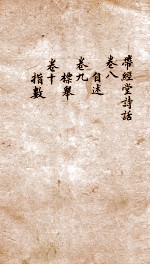 帶經堂詩話
卷八
自述
卷九
標舉
卷十
指數